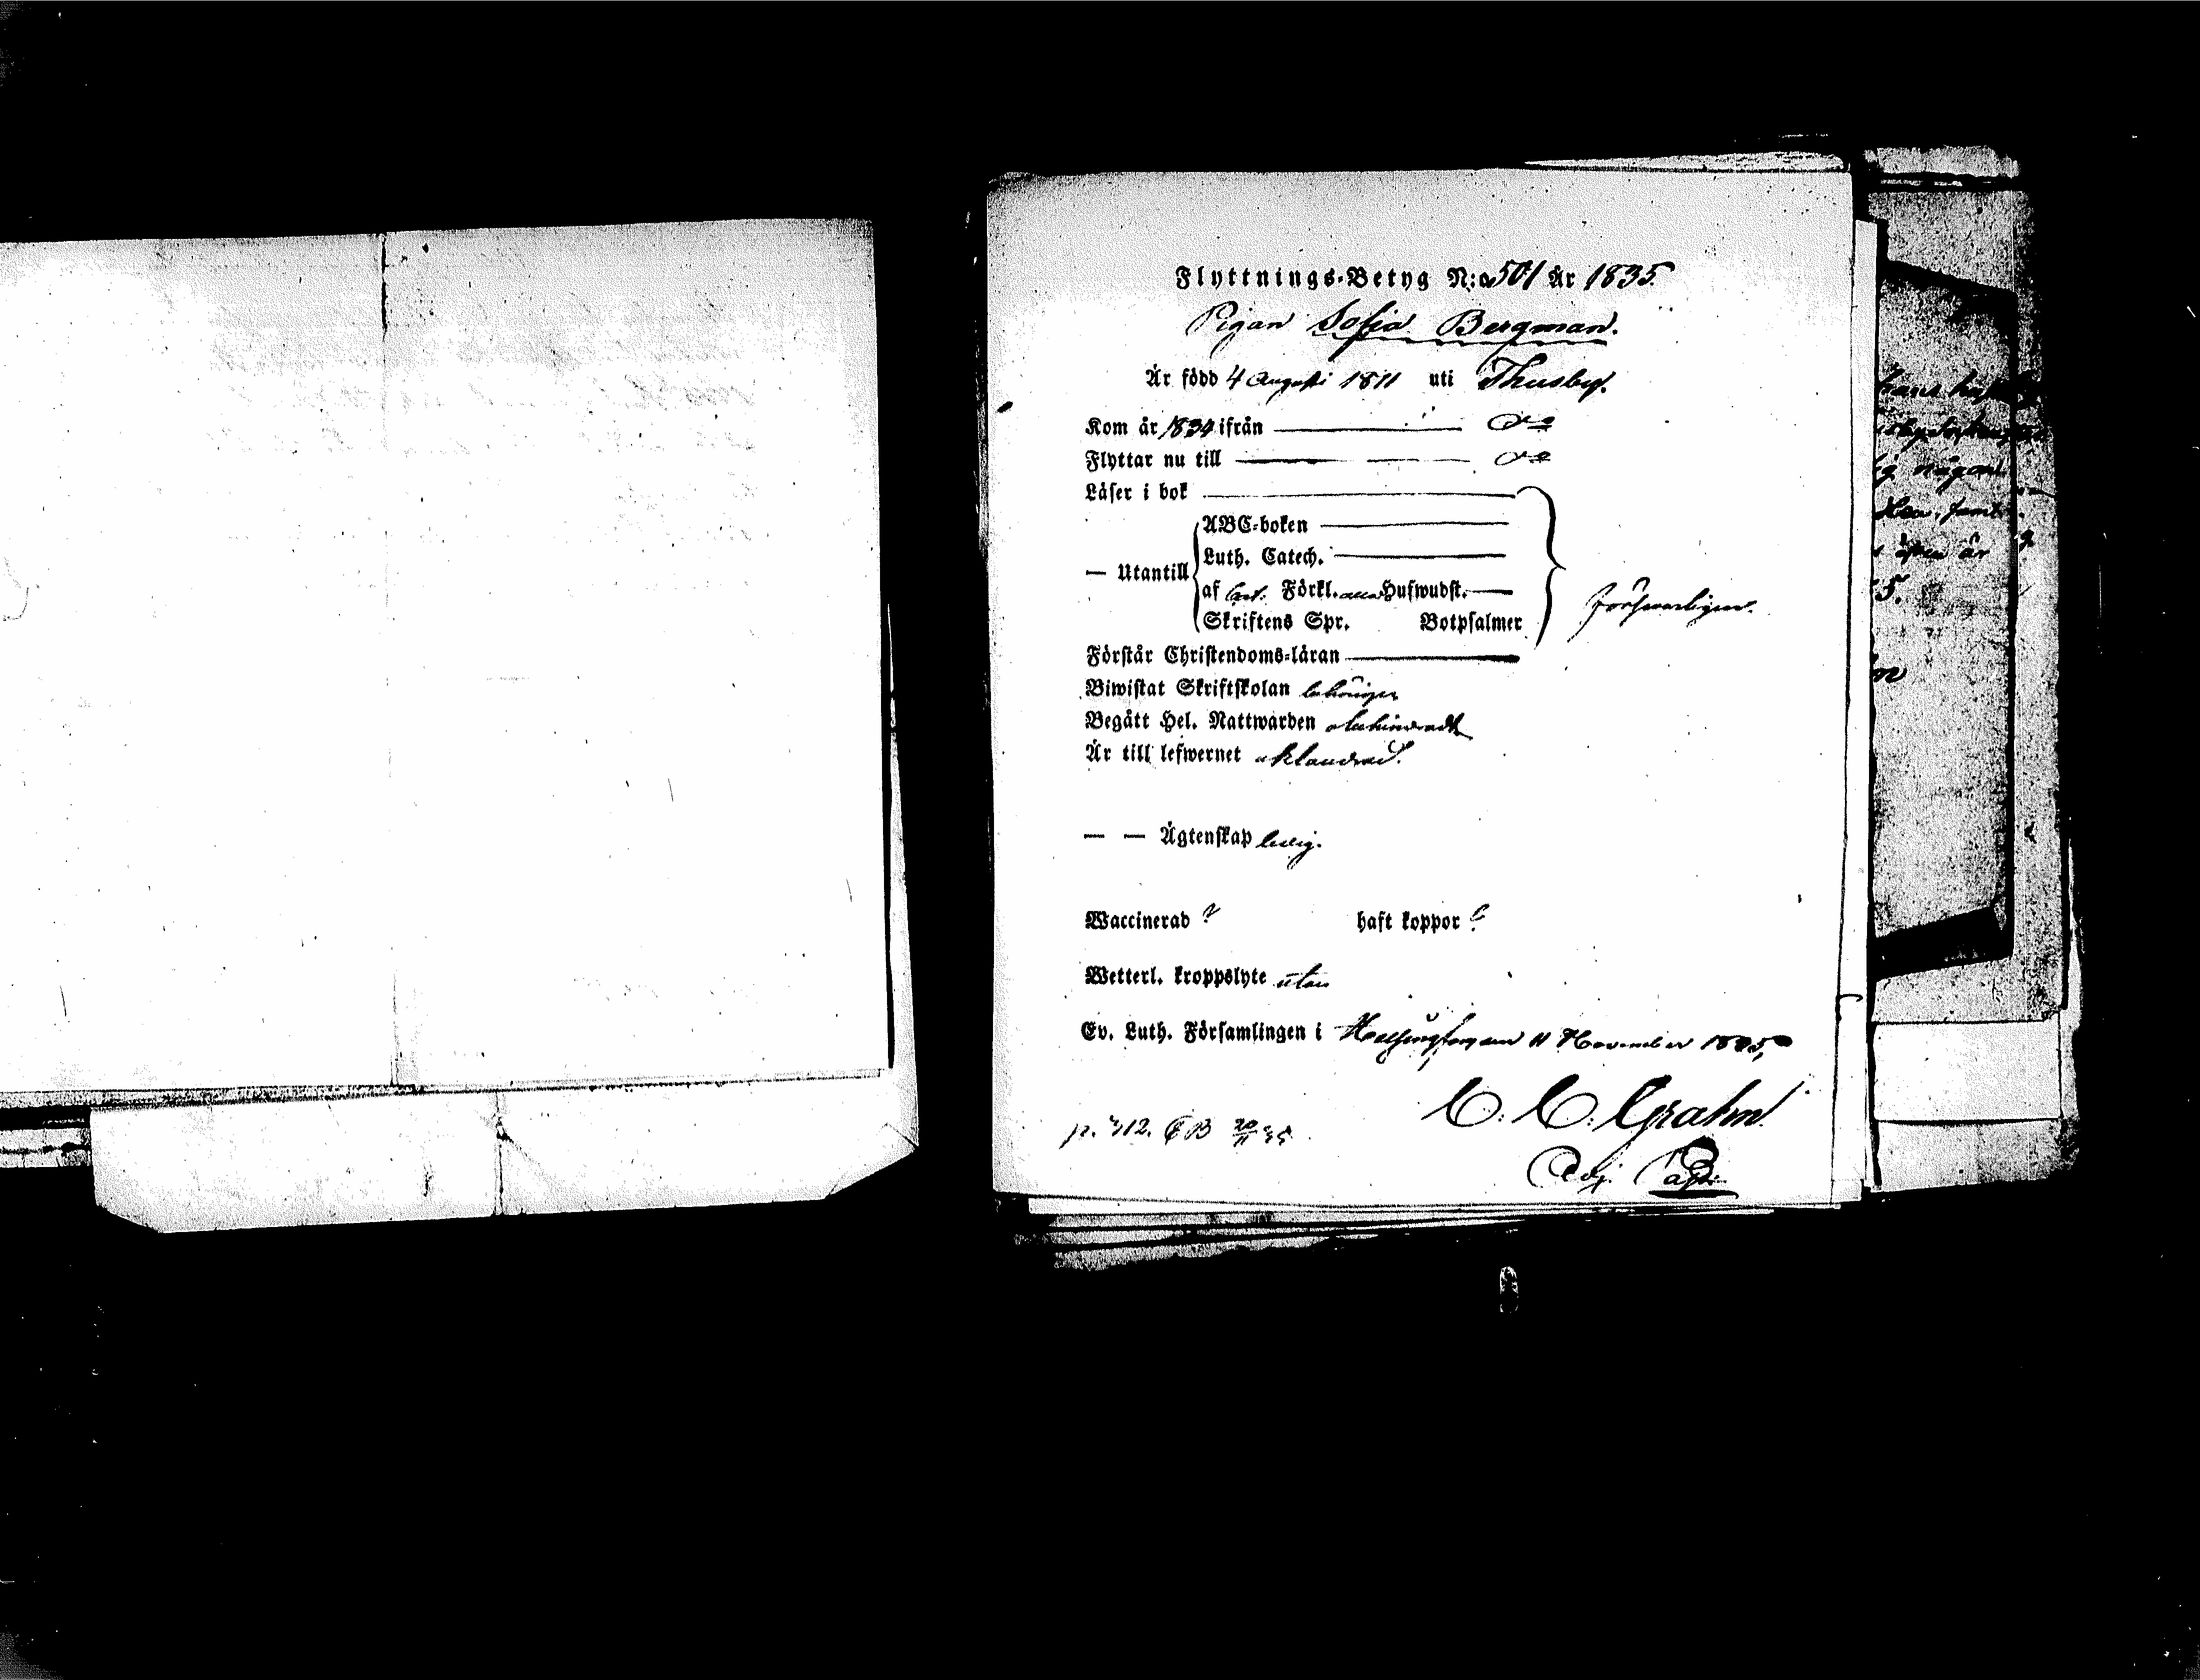 Flyttnings-Betyg N:o 501 År 1835.
Pigan Sofia Bergman.
Är född 4 Augusti 1811 uti Thusby.
Kom år 1834 ifrån — do
Flyttar nu till — do
Läser i bok
ABC-boken
Luth. Catech.
— Utantill
af Förkl. Hufwudst.
försvarligen.
Skriftens Spr. Botpsalmer
Förstår Christendoms-läran
Biwistat Skriftskolan behörigen
Begått Hel. Nattwarden obehindradt
Är till lefwernet oklandrad.
— — Ägtenskap ledig.
Waccinerad ? haft koppor ?
Wetterl. kroppslyte utan
Ev. Luth. Församlingen i Helsingfors den 11 November 1835,
C. C. Grahn
p. 412. 20/11 35.
Adj.
någon
är
5.